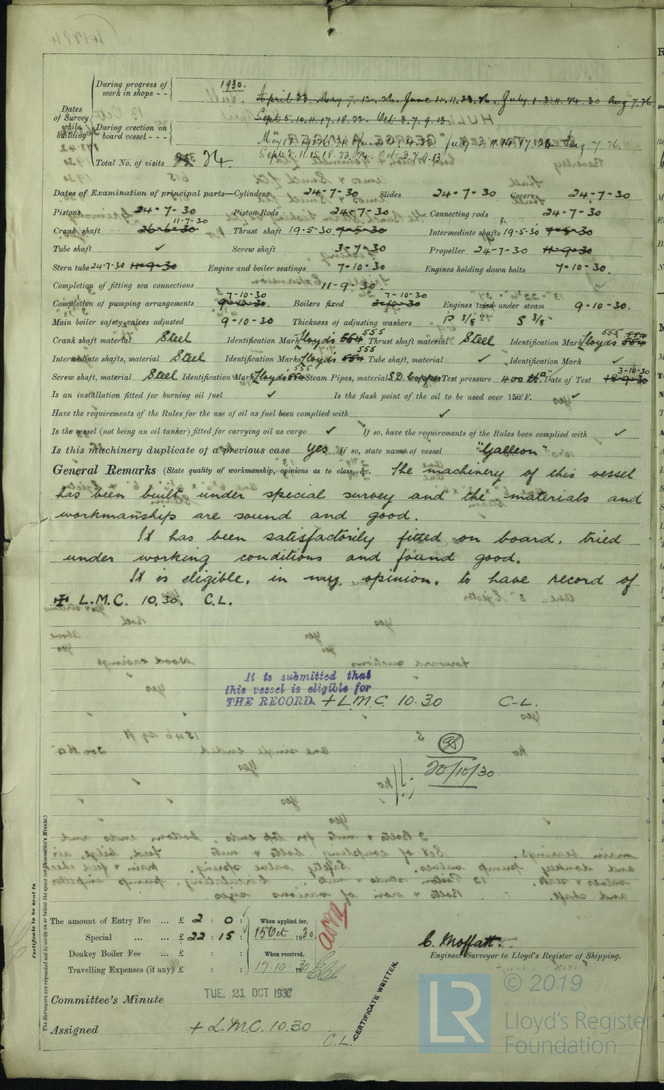 1930.
During progress of work in shops - - April 23. May 7. 12. 26. June 11. 23. 26. July 1. 3. 11. 24. 30 Aug 7. 26.
Sept 5. 10. 11. 17. 18. 22. Oct. 3. 7. 9. 13.
Dates of Survey while building
During erection on board vessel - - -
Sept. 5. 11. 15. 18. 23. Oct. 3. 7. 9. 13.
Total No. of visits 34.
Dates of Examination of principal parts—Cylinders 24-7-30 Slides 24-7-30 Covers 24-7-30
Pistons 24-7-30 Piston Rods 24-7-30 Connecting rods 24-7-30
Crank shaft 11-7-30 Thrust shaft 19-5-30 Intermediate shafts 19-5-30
Tube shaft ✓ Screw shaft 3-7-30 Propeller 24-7-30
Stern tube 24-7-30 Engine and boiler seatings 7-10-30 Engines holding down bolts 7-10-30.
Completion of fitting sea connections 11-9-30
Completion of pumping arrangements 7-10-30 Boilers fixed 7-10-30 Engines tried under steam 9-10-30.
Main boiler safety valves adjusted 9-10-30 Thickness of adjusting washers P 3/8" S 3/8"
Crank shaft material Steel Identification Mark Lloyds 555 Thrust shaft material Steel Identification Mark Lloyds 555
Intermediate shafts, material Steel Identification Marks Lloyds 555 Tube shaft, material ✓ Identification Mark ✓
Screw shaft, material Steel Identification Mark Lloyds 555 Steam Pipes, material S.D. Copper Test pressure 400 lbs Date of Test 3-10-30
Is an installation fitted for burning oil fuel ✓ Is the flash point of the oil to be used over 150°F. ✓
Have the requirements of the Rules for the use of oil as fuel been complied with ✓
Is the vessel (not being an oil tanker) fitted for carrying oil as cargo ✓ If so, have the requirements of the Rules been complied with ✓
Is this machinery duplicate of a previous case Yes If so, state name of vessel "Galleon"
General Remarks (State quality of workmanship, opinions as to class, &c. The machinery of this vessel
has been built under special survey and the materials and
workmanship are sound and good.
It has been satisfactorily fitted on board, tried
under working conditions and found good.
It is eligible, in my opinion, to have record of
✠ L.M.C. 10.30. C.L.
It is submitted that
this vessel is eligible for
THE RECORD. + L.M.C. 10.30 C.L.
20/10/30
The amount of Entry Fee ... £ 2 : 0 : When applied for,
Special ... ... £ 22 : 15 : 15 Oct 1930
Donkey Boiler Fee ... £ : : When received,
Travelling Expenses (if any) £ : : 17.10.30
C. Moffatt.
Engineer Surveyor to Lloyd's Register of Shipping.
Committee's Minute TUE. 21 OCT 1930
Assigned + L.M.C. 10.30
C.L.
CERTIFICATE WRITTEN.
Certificate to be sent to
(The Surveyors are requested not to write on or below the space for Committee's Minute.)
© 2019
LR Lloyd's Register
Foundation